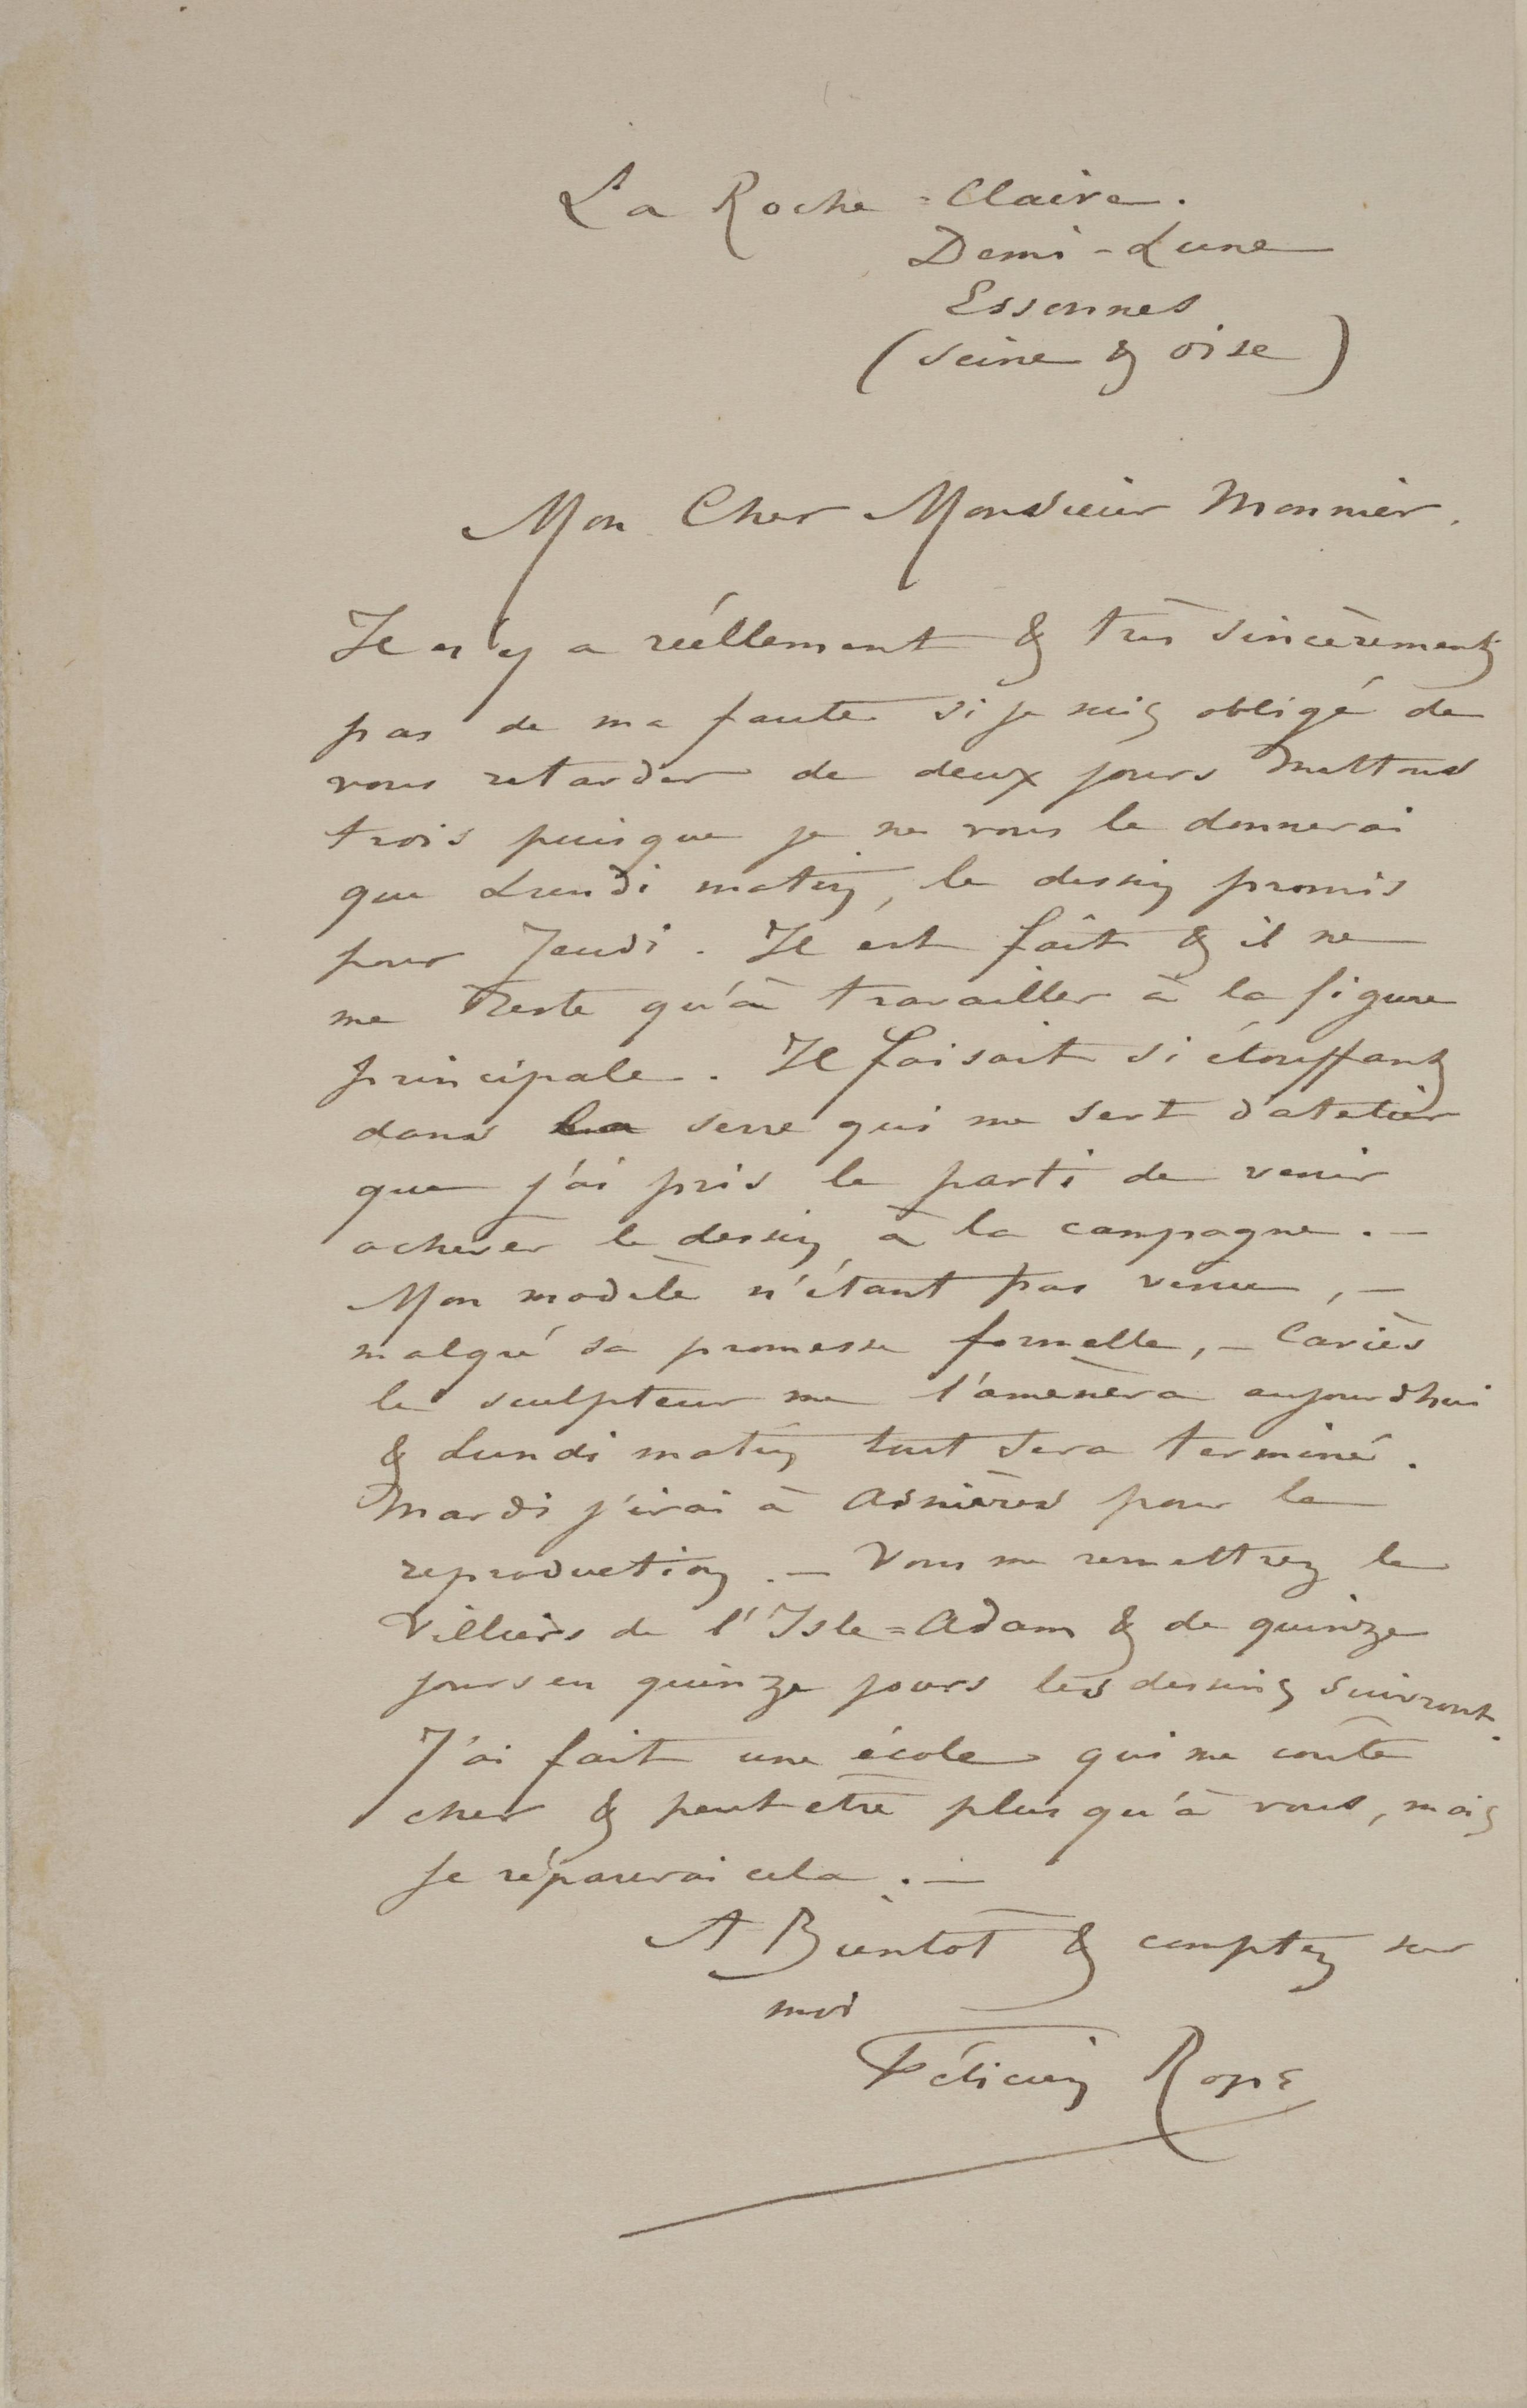 La Roche=Claire.
Demi-Lune
Essonnes
(Seine & oise)
Mon Cher Monsieur Monnier,
Il n'y a réellement & très sincèrement
pas de ma faute si je suis obligé de
vous retarder de deux jours mettons
trois puisque je ne vous le donnerai
que Lundi matin, le dessin promis
pour Jeudi. Il est fait & il ne
me reste qu'à travailler à la figure
principale. Il faisait si étouffant
dans la serre qui me sert d'atelier
que j'ai pris le parti de venir
achever le dessin à la campagne. –
Mon modèle n'étant pas venu, –
malgré sa promesse formelle, – Cariès
le sculpteur me l'amenèra aujourdhui
& Lundi matin tout sera terminé.
Mardi j'irai à Asnières pour la
reproduction. – Vous me remettrez le
Villiers de l'Isle=Adam & de quinze
jours en quinze jours les dessins suivront.
J'ai fait une école qui me coute
cher & peut etre plus qu'à vous, mais
je réparerai cela. –
A Bientot & comptez sur
moi
Félicien Rops